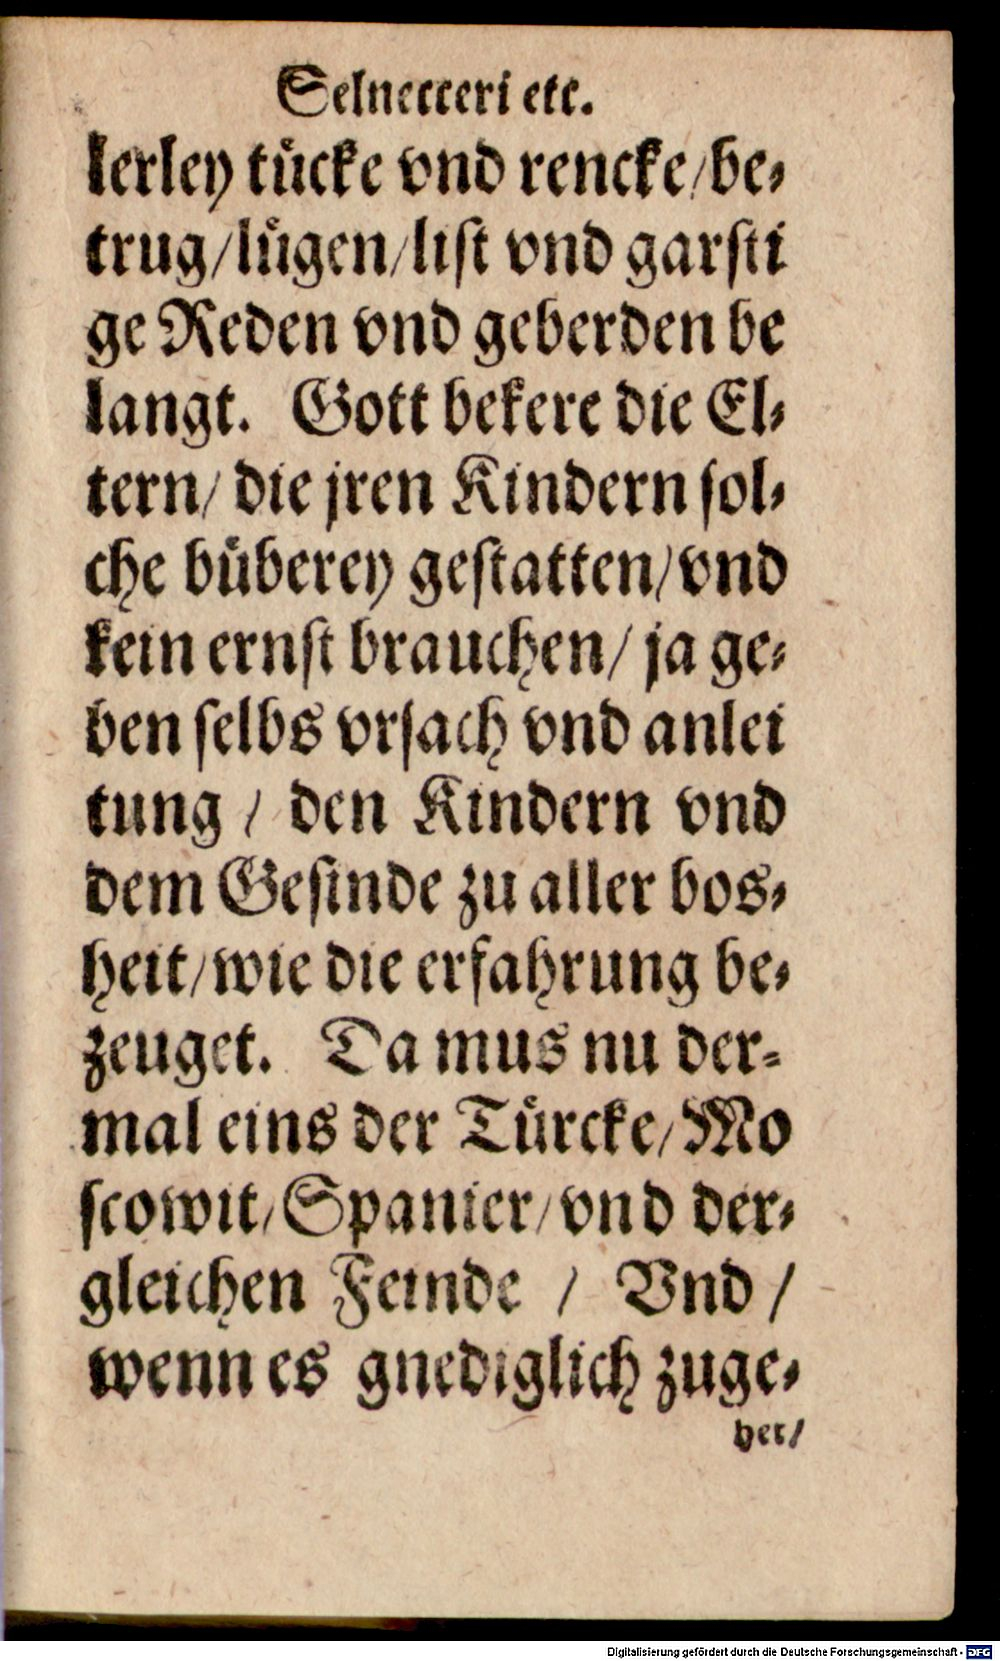 Selnecceri etc.
lerley tuͤcke vnd rencke/be⸗
trug/luͤgen/list vnd garsti
ge Reden vnd geberden be
langt. Gott bekere die El⸗
tern/ die jren Kindern sol⸗
che buͤberey gestatten/vnd
kein ernst brauchen/ ja ge⸗
ben selbs vrsach vnd anlei
tung / den Kindern vnd
dem Gesinde zu aller bos⸗
heit/wie die erfahrung be⸗
zeuget. Da mus nu der⸗
mal eins der Tuͤrcke/Mo
scowit/Spanier/vnd der⸗
gleichen Feinde / Vnd /
wenn es gnediglich zuge⸗
het/
Digitalisierung gefördert durch die Deutsche Forschungsgemeinschaft - DFG